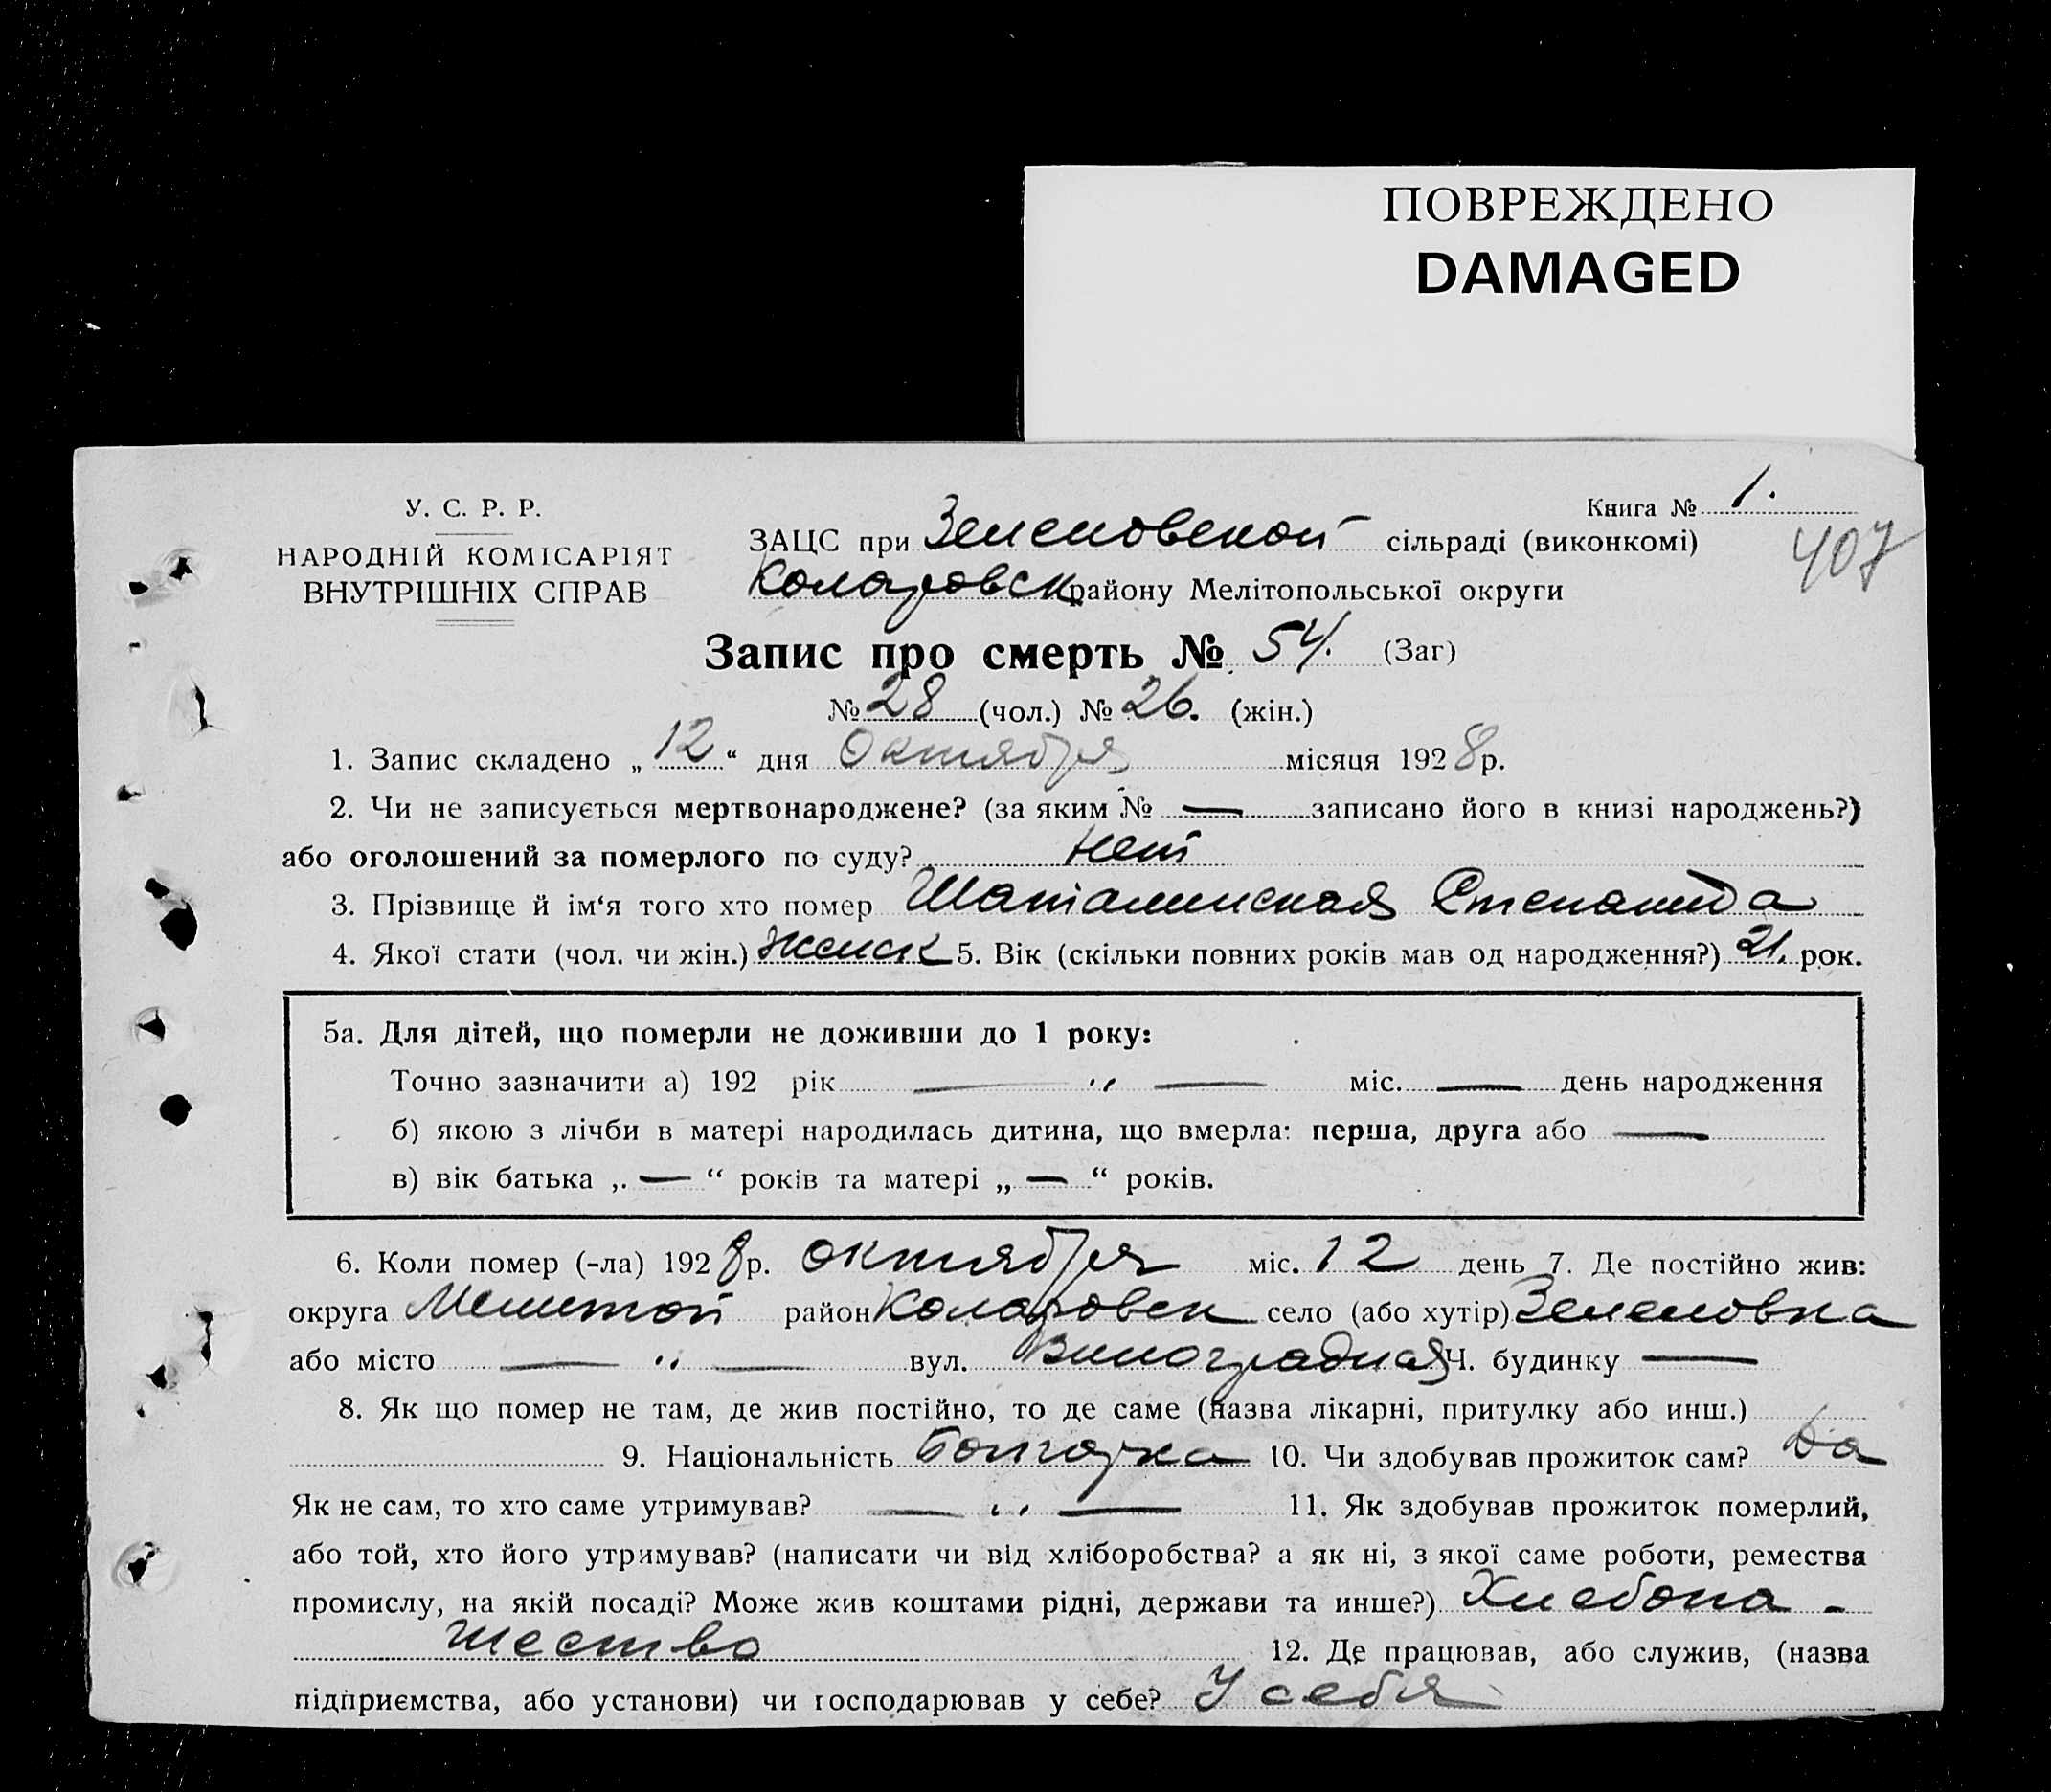 ПОВРЕЖДЕНО
DAMAGED
У. С. Р. Р.
НАРОДНІЙ КОМІСАРІЯТ
ВНУТРІШНІХ СПРАВ
Книга № 1.
407
ЗАЦС при Зеленовской сільраді (виконкомі)
Коларовск району Мелітопольської округи
Запис про смерть № 54. (Заг)
№ 28 (чол.) № 26. (жін.)
1. Запис складено „ 12 “ дня Октября місяця 1928 р.
2. Чи не записується мертвонароджене? (за яким № — записано його в книзі народжень?)
або оголошений за померлого по суду? нет
3. Прізвище й ім‘я того хто помер Шаталинская Степанида
4. Якої стати (чол. чи жін.) женск 5. Вік (скільки повних років мав од народження?) 21. рок.
5а. Для дітей, що померли не доживши до 1 року:
Точно зазначити а) 192 рік — „ — міс. — день народження
б) якою з лічби в матері народилась дитина, що вмерла: перша, друга або —
в) вік батька „ — “ років та матері „ — “ років.
6. Коли помер (-ла) 1928 р. октября міс. 12 день 7. Де постійно жив:
округа Мелитоп район Коларовск село (або хутір) Зеленовка
або місто — „ — вул. Виноградная Ч. будинку —
8. Як що помер не там, де жив постійно, то де саме (назва лікарні, притулку або инш.)
9. Національність Болгарка 10. Чи здобував прожиток сам? Да
Як не сам, то хто саме утримував? — „ — 11. Як здобував прожиток померлий,
або той, хто його утримував? (написати чи від хліборобства? а як ні, з якої саме роботи, ремества
промислу, на якій посаді? Може жив коштами рідні, держави та инше?) Хлебопа-
шество 12. Де працював, або служив, (назва
підприємства, або установи) чи господарював у себе? У себя